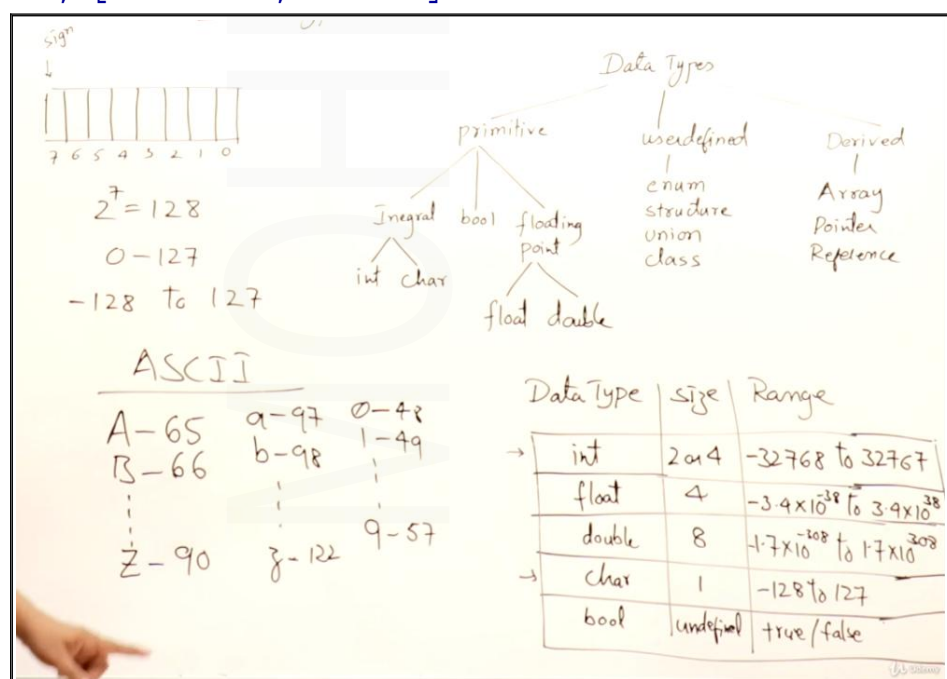 sign
↓
7 6 5 4 3 2 1 0
2⁷ = 128
0 – 127
-128 to 127
Data Types
primitive userdefined Derived
Inegral bool floating point
int char
float double
enum
structure
union
class
Array
Pointer
Reference
ASCII
A – 65 a – 97 0 – 48
B – 66 b – 98 1 – 49
Z – 90 z – 122 9 – 57
Data Type size Range
→ int 2 or 4 -32768 to 32767
float 4 -3.4×10⁻³⁸ to 3.4×10³⁸
double 8 -1.7×10⁻³⁰⁸ to 1.7×10³⁰⁸
→ char 1 -128 to 127
bool undefined true/false
Udemy